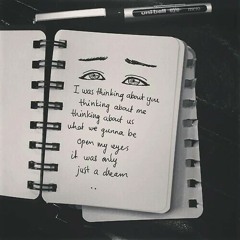 uni-ball eye
I was thinking about you
thinking about me
thinking about us
what we gunna be
open my eyes
it was only
just a dream
..